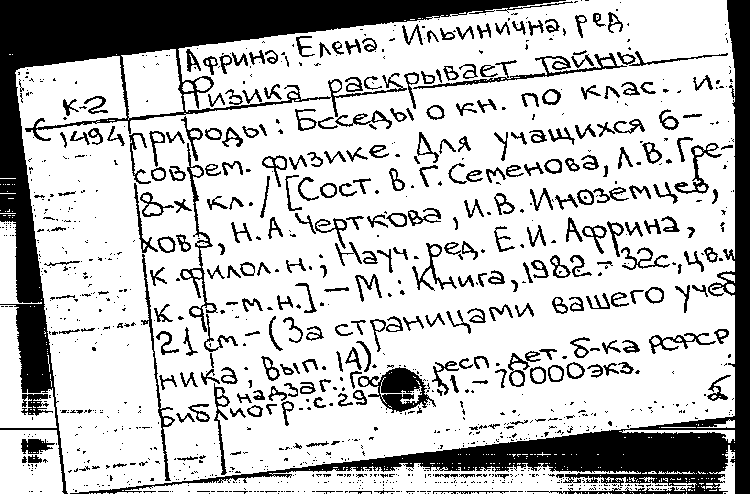 Африна, Елена Ильинична, ред.
К-2 Физика раскрывает тайны
С 1494 природы: Беседы о кн. по клас. и
соврем. физике. Для учащихся 6-
8-х кл. / [Сост. В. Г. Семенова, Л. В. Гре-
хова, Н. А. Черткова, И. В. Иноземцев,
к. филол. н.; Науч. ред. Е. И. Африна,
к. ф.-м. н.]. - М.: Книга, 1982. - 32 с., цв. и
21 см. - (За страницами вашего учеб
ника; Вып. 14).
В надзаг.: Гос респ. дет. б-ка РСФСР
Библиогр.: с. 29- 31. - 70000 экз.